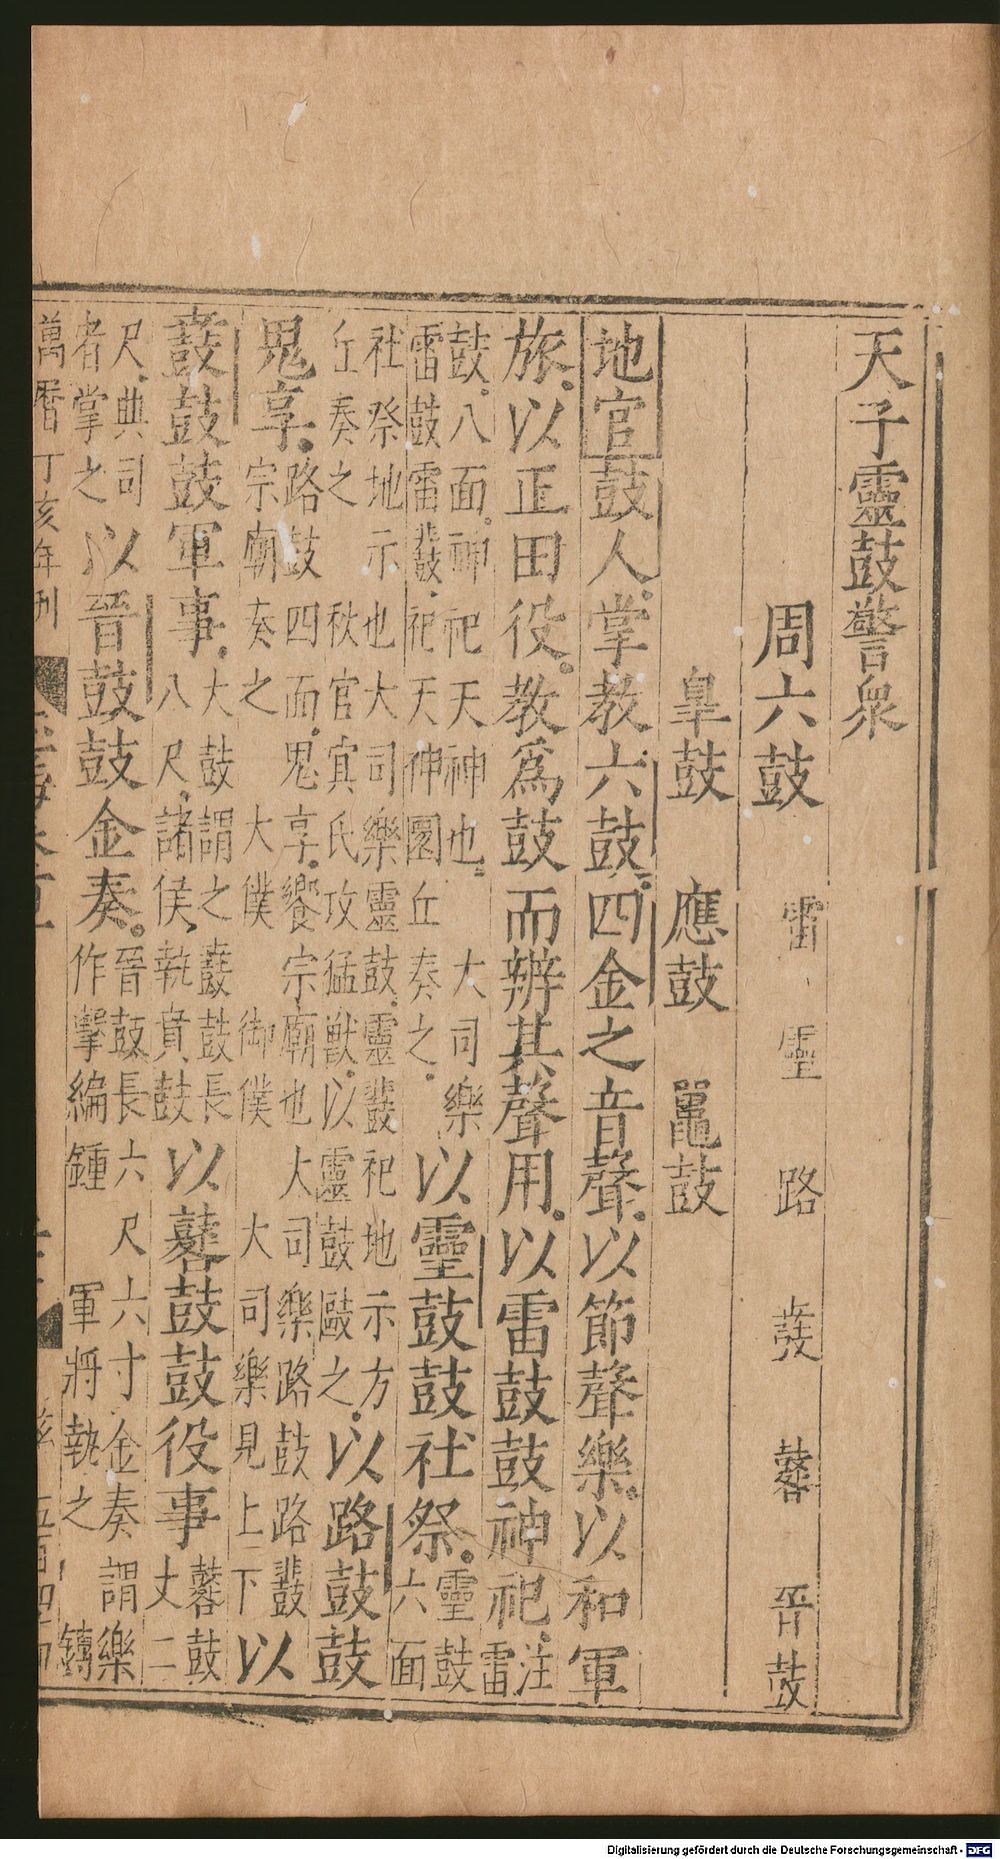 天子靈鼓警衆
周六鼓 雷 靈 路 鼖 鼛 晉鼓
皐鼓 應鼓 鼉鼓
地官鼓人掌教六鼓四金之音聲以節聲樂以和軍
旅以正田役教爲鼓而辨其聲用以雷鼓鼓神祀注雷
鼓八面神祀天神也 大司樂
雷鼓雷鼗祀天神圜丘奏之
以靈鼓鼓社祭靈鼓六面
社祭地示也大司樂靈鼓靈鼗祀地示方
丘奏之 秋官冥氏攻猛獸以靈鼓敺之
以路鼓鼓
鬼享路鼓四面鬼享饗宗廟也大司樂路鼓路鼗
宗廟奏之 大僕 御僕 大司樂見上下
以
鼖鼓鼓軍事大鼓謂之鼖鼓長
八尺諸侯執賁鼓
以鼛鼓鼓役事鼛鼓
丈二
尺典司
者掌之
以晉鼓鼓金奏晉鼓長六尺六寸金奏謂樂
作擊編鍾 軍將執之 鏄
萬曆丁亥年刊
Digitalisierung gefördert durch die Deutsche Forschungsgemeinschaft - DFG